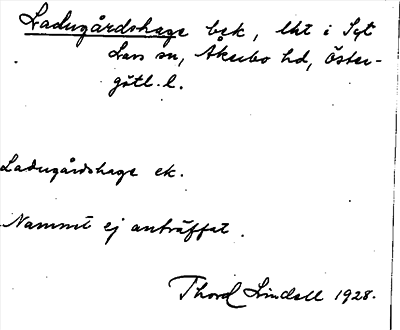 Ladugårdshage bsk, lht i Skt
Lars sn, Åkerbo hd, Öster-
götl. l.
Ladugårdshage ek.
Namnet ej anträffat.
Thord Lindell 1928.